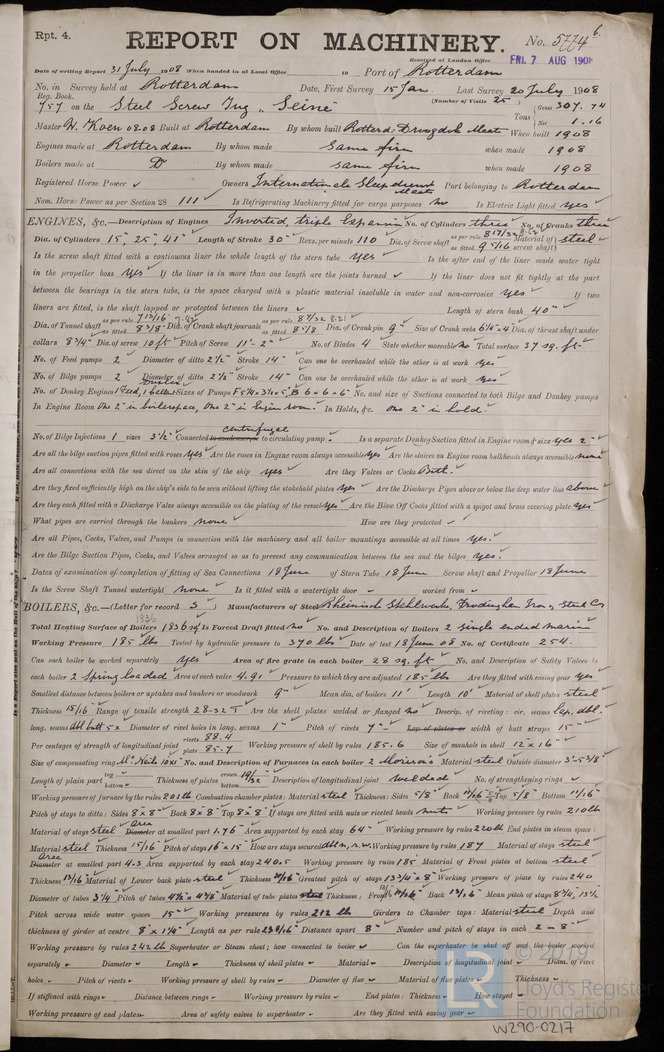 Rpt. 4.
REPORT ON MACHINERY.
No. 5774
Received at London Office
FRI. 7 AUG 1908
Date of writing Report 31 July 1908 When handed in at Local Office 19 Port of Rotterdam
No. in Survey held at Rotterdam Date, First Survey 15 Jan. Last Survey 20 July 1908
Reg. Book. (Number of Visits 25)
757 on the Steel Screw Tug "Seine" Tons Gross 307.74 Net 1.16
Master W. Koen 08.08 Built at Rotterdam By whom built Rotterd. Droogdok Maats When built 1908
Engines made at Rotterdam By whom made same firm when made 1908
Boilers made at Do By whom made same firm when made 1908
Registered Horse Power Owners Internationale Sleepdienst Maats Port belonging to Rotterdam
Nom. Horse Power as per Section 28 111 Is Refrigerating Machinery fitted for cargo purposes no Is Electric Light fitted yes
ENGINES, &c.—Description of Engines Inverted, triple expansion No. of Cylinders three No. of Cranks three
Dia. of Cylinders 15", 25", 41" Length of Stroke 30" Revs. per minute 110 Dia. of Screw shaft as per rule 8 17/32 as fitted 9 5/16 Material of screw shaft steel
Is the screw shaft fitted with a continuous liner the whole length of the stern tube yes Is the after end of the liner made water tight
in the propeller boss yes If the liner is in more than one length are the joints burned If the liner does not fit tightly at the part
between the bearings in the stern tube, is the space charged with a plastic material insoluble in water and non-corrosive yes If two
liners are fitted, is the shaft lapped or protected between the liners Length of stern bush 40"
Dia. of Tunnel shaft as per rule 7 13/16 as fitted 8 3/8 Dia. of Crank shaft journals as per rule 8 7/32 8.21 as fitted 8 5/8 Dia. of Crank pin 9" Size of Crank webs 6 1/4 x 4 Dia. of thrust shaft under
collars 8 3/4 Dia. of screw 10 ft Pitch of Screw 11'-2" No. of Blades 4 State whether moveable no Total surface 37 sq. ft.
No. of Feed pumps 2 Diameter of ditto 2 1/2" Stroke 14" Can one be overhauled while the other is at work yes
No. of Bilge pumps 2 Diameter of ditto 2 1/2" Stroke 14" Can one be overhauled while the other is at work yes
No. of Donkey Engines 1 Feed, 1 ballast Sizes of Pumps F 5 1/4 x 3 1/2 x 5" B 6 x 6 x 6" No. and size of Suctions connected to both Bilge and Donkey pumps
In Engine Room One 2" in boilerspace, One 2" in Engin room. In Holds, &c. One 2" in hold.
No. of Bilge Injections 1 sizes 3 1/2" Connected to condenser, or to circulating pump. centrifugal Is a separate Donkey Suction fitted in Engine room & size yes 2"
Are all the bilge suction pipes fitted with roses yes Are the roses in Engine room always accessible yes Are the sluices on Engine room bulkheads always accessible none
Are all connections with the sea direct on the skin of the ship yes Are they Valves or Cocks Both.
Are they fixed sufficiently high on the ship's side to be seen without lifting the stokehold plates yes Are the Discharge Pipes above or below the deep water line above
Are they each fitted with a Discharge Valve always accessible on the plating of the vessel yes Are the Blow Off Cocks fitted with a spigot and brass covering plate yes
What pipes are carried through the bunkers none How are they protected
Are all Pipes, Cocks, Valves, and Pumps in connection with the machinery and all boiler mountings accessible at all times yes.
Are the Bilge Suction Pipes, Cocks, and Valves arranged so as to prevent any communication between the sea and the bilges yes.
Dates of examination of completion of fitting of Sea Connections 18 June of Stern Tube 18 June Screw shaft and Propeller 18 June
Is the Screw Shaft Tunnel watertight none Is it fitted with a watertight door worked from
BOILERS, &c.—(Letter for record S) Manufacturers of Steel Rheinish Stahlwerke, Frodingham Iron & Steel Co
Total Heating Surface of Boilers 1836 sq' Is Forced Draft fitted no No. and Description of Boilers 2 single ended marine
Working Pressure 185 lbs Tested by hydraulic pressure to 370 lbs Date of test 18 June 08 No. of Certificate 254.
Can each boiler be worked separately yes Area of fire grate in each boiler 28 sq. ft. No. and Description of Safety Valves to
each boiler 2 Spring loaded Area of each valve 4.91 Pressure to which they are adjusted 185 lbs Are they fitted with easing gear yes
Smallest distance between boilers or uptakes and bunkers or woodwork 9" Mean dia. of boilers 11' Length 10' Material of shell plates steel
Thickness 15/16 Range of tensile strength 28-32 T Are the shell plates welded or flanged no Descrip. of riveting: cir. seams lap. dbl.
long. seams dbl butt 5x Diameter of rivet holes in long. seams 1" Pitch of rivets 7" Lap of plates or width of butt straps 15"
Per centages of strength of longitudinal joint rivets 88.4 plate 85.7 Working pressure of shell by rules 185.6 Size of manhole in shell 12 x 16"
Size of compensating ring Mc. Neil 10x1" No. and Description of Furnaces in each boiler 2 Morison's Material steel Outside diameter 3'-5 3/8"
Length of plain part top bottom Thickness of plates crown bottom 19/32 Description of longitudinal joint welded No. of strengthening rings
Working pressure of furnace by the rules 201 lb Combustion chamber plates: Material steel Thickness: Sides 5/8" Back Top 5/8" Bottom 11/16"
Pitch of stays to ditto: Sides 8"x8" Back 8"x8" Top 8"x8" If stays are fitted with nuts or riveted heads nuts Working pressure by rules 210 lb
Material of stays steel Area Diameter at smallest part 1.76 Area supported by each stay 64" Working pressure by rules 220 lb End plates in steam space:
Material steel Thickness 15/16 Pitch of stays 16"x15" How are stays secured dbl n, r.w. Working pressure by rules 187 Material of stays steel
Area Diameter at smallest part 4.3 Area supported by each stay 240.5 Working pressure by rules 185 Material of Front plates at bottom steel
Thickness 13/16 Material of Lower back plate steel Thickness Greatest pitch of stays 13 3/4"x8" Working pressure of plate by rules 240
Diameter of tubes 3 1/4 Pitch of tubes 4 1/2 x 4 3/8 Material of tube plates steel Thickness: Front Back 13/16 Mean pitch of stays 8 3/4, 13 1/2
Pitch across wide water spaces 15" Working pressures by rules 212 lb Girders to Chamber tops: Material steel Depth and
thickness of girder at centre 8"x1 1/4" Length as per rule 23 9/16 Distance apart 8" Number and pitch of stays in each 2-8"
Working pressure by rules 242 lb Superheater or Steam chest; how connected to boiler Can the superheater be shut off and the boiler worked
separately Diameter Length Thickness of shell plates Material Description of longitudinal joint Diam. of rivet
holes Pitch of rivets Working pressure of shell by rules Diameter of flue Material of flue plates Thickness
If stiffened with rings Distance between rings Working pressure by rules End plates: Thickness How stayed
Working pressure of end plates Area of safety valves to superheater Are they fitted with easing gear
© 2019
Lloyd's Register
Foundation
W290-0217